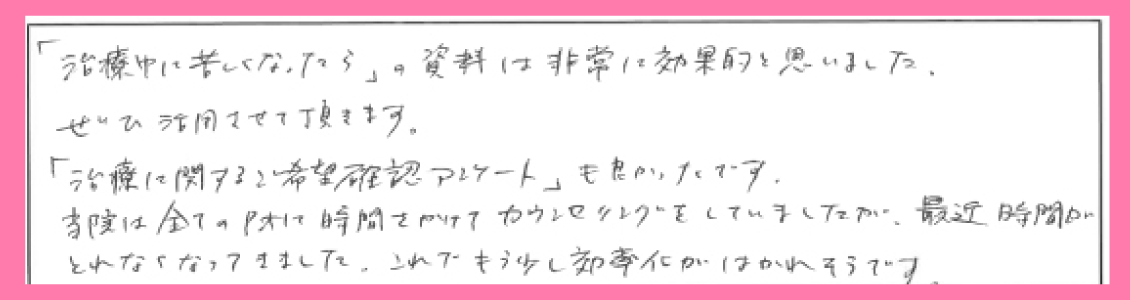 「治療中に苦しくなったら」の資料は非常に効果的と思いました。
ぜひ活用させて頂きます。
「治療に関するご希望確認アンケート」も良かったです。
当院は全ての Ptに時間をかけてカウンセリングをしていましたが、最近時間が
とれなくなってきました。これでもう少し効率化がはかれそうです。